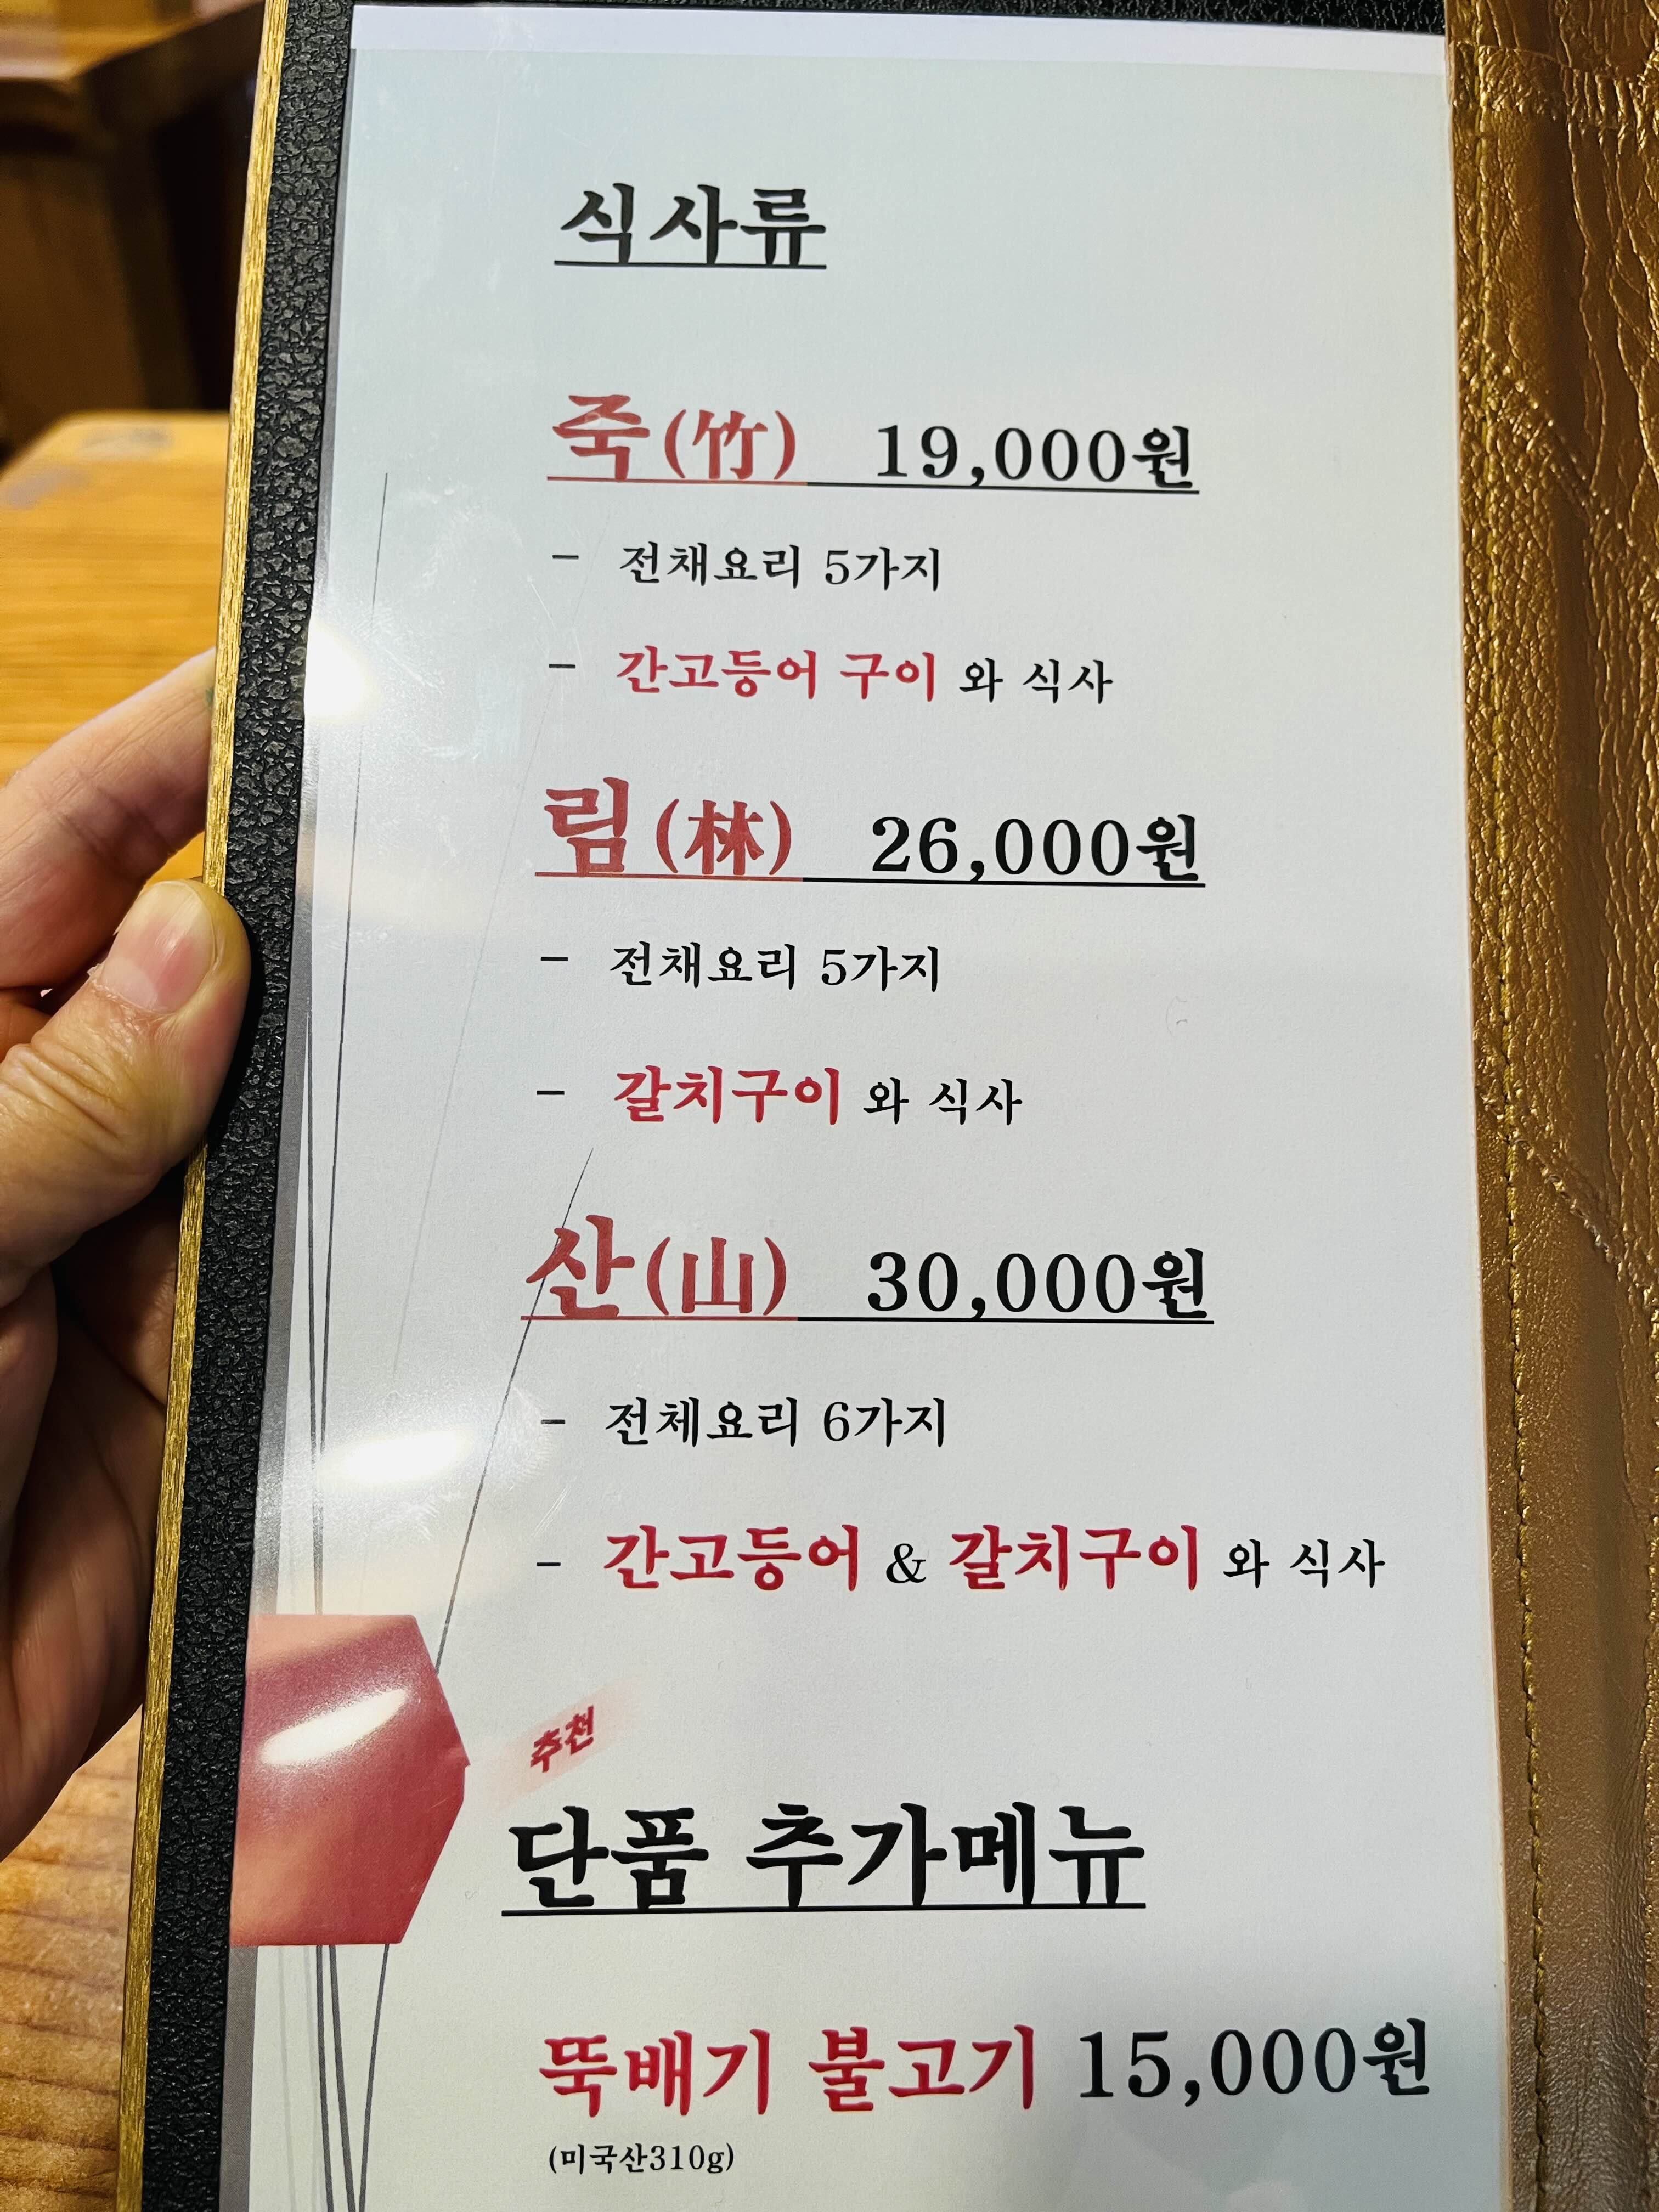 식사류
죽(竹) 19,000원
- 전채요리 5가지
- 간고등어 구이 와 식사
림(林) 26,000원
- 전채요리 5가지
- 갈치구이 와 식사
산(山) 30,000원
- 전체요리 6가지
- 간고등어 & 갈치구이 와 식사
추천
단품 추가메뉴
뚝배기 불고기 15,000원
(미국산310g)